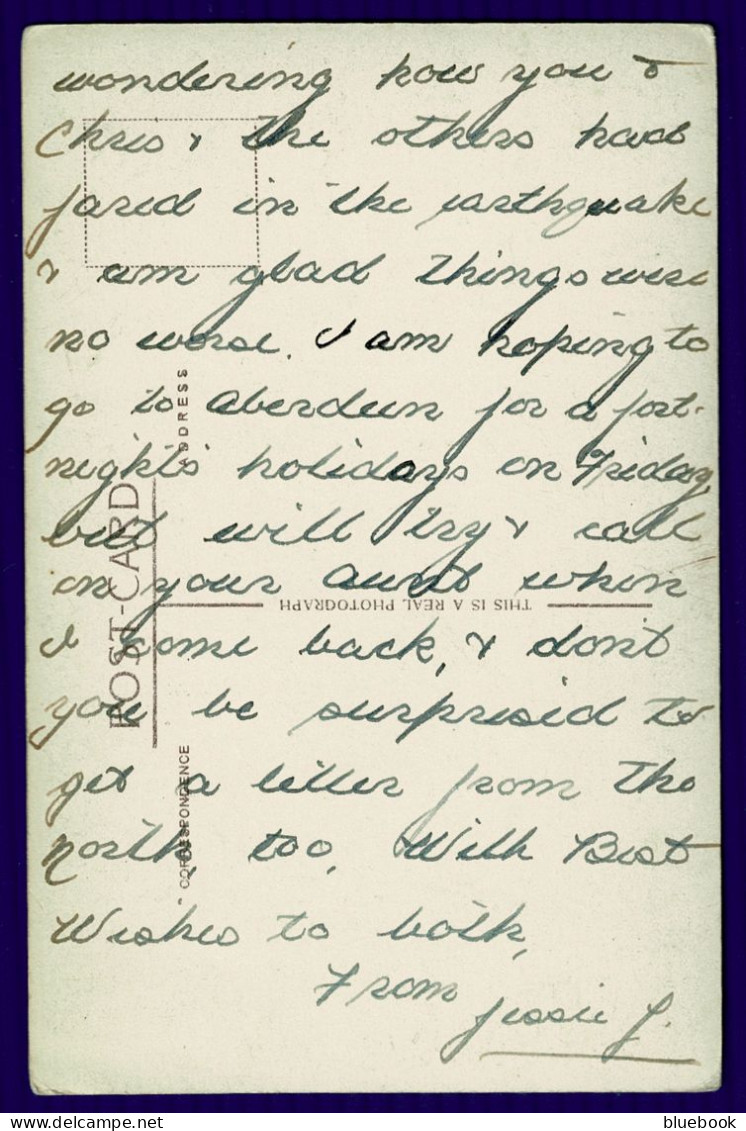 wondering how you &
Chris & the others had
fared in the earthquake
& am glad things were
no worse. I am hoping to
go to Aberdeen for a fort-
night's holidays on Friday,
but will try & call
on your Aunt when
I come back, & don't
you be surprised to
get a letter from the
north, too. With Best
Wishes to both,
From
Jessie J.
POST-CARD
ADDRESS
THIS IS A REAL PHOTOGRAPH
CORRESPONDENCE
bluebook